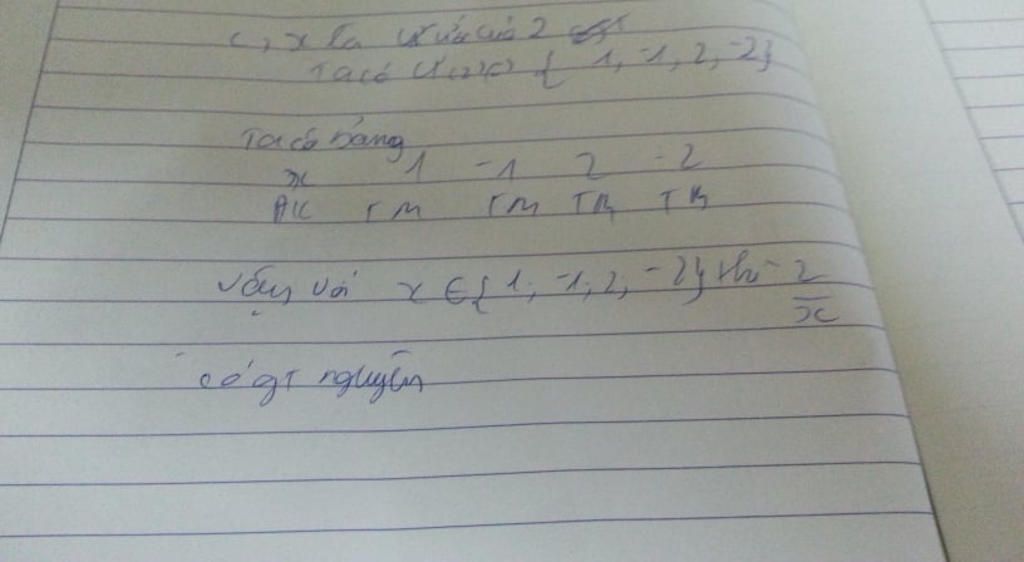 c, x là ước của 2
Ta có Ư(2) = { 1, -1, 2, -2}
Ta có bảng
x 1 -1 2 -2
ĐK TM TM TM TM
Vậy với x ∈ { 1, -1, 2, -2} thì 2/x
có gt nguyên